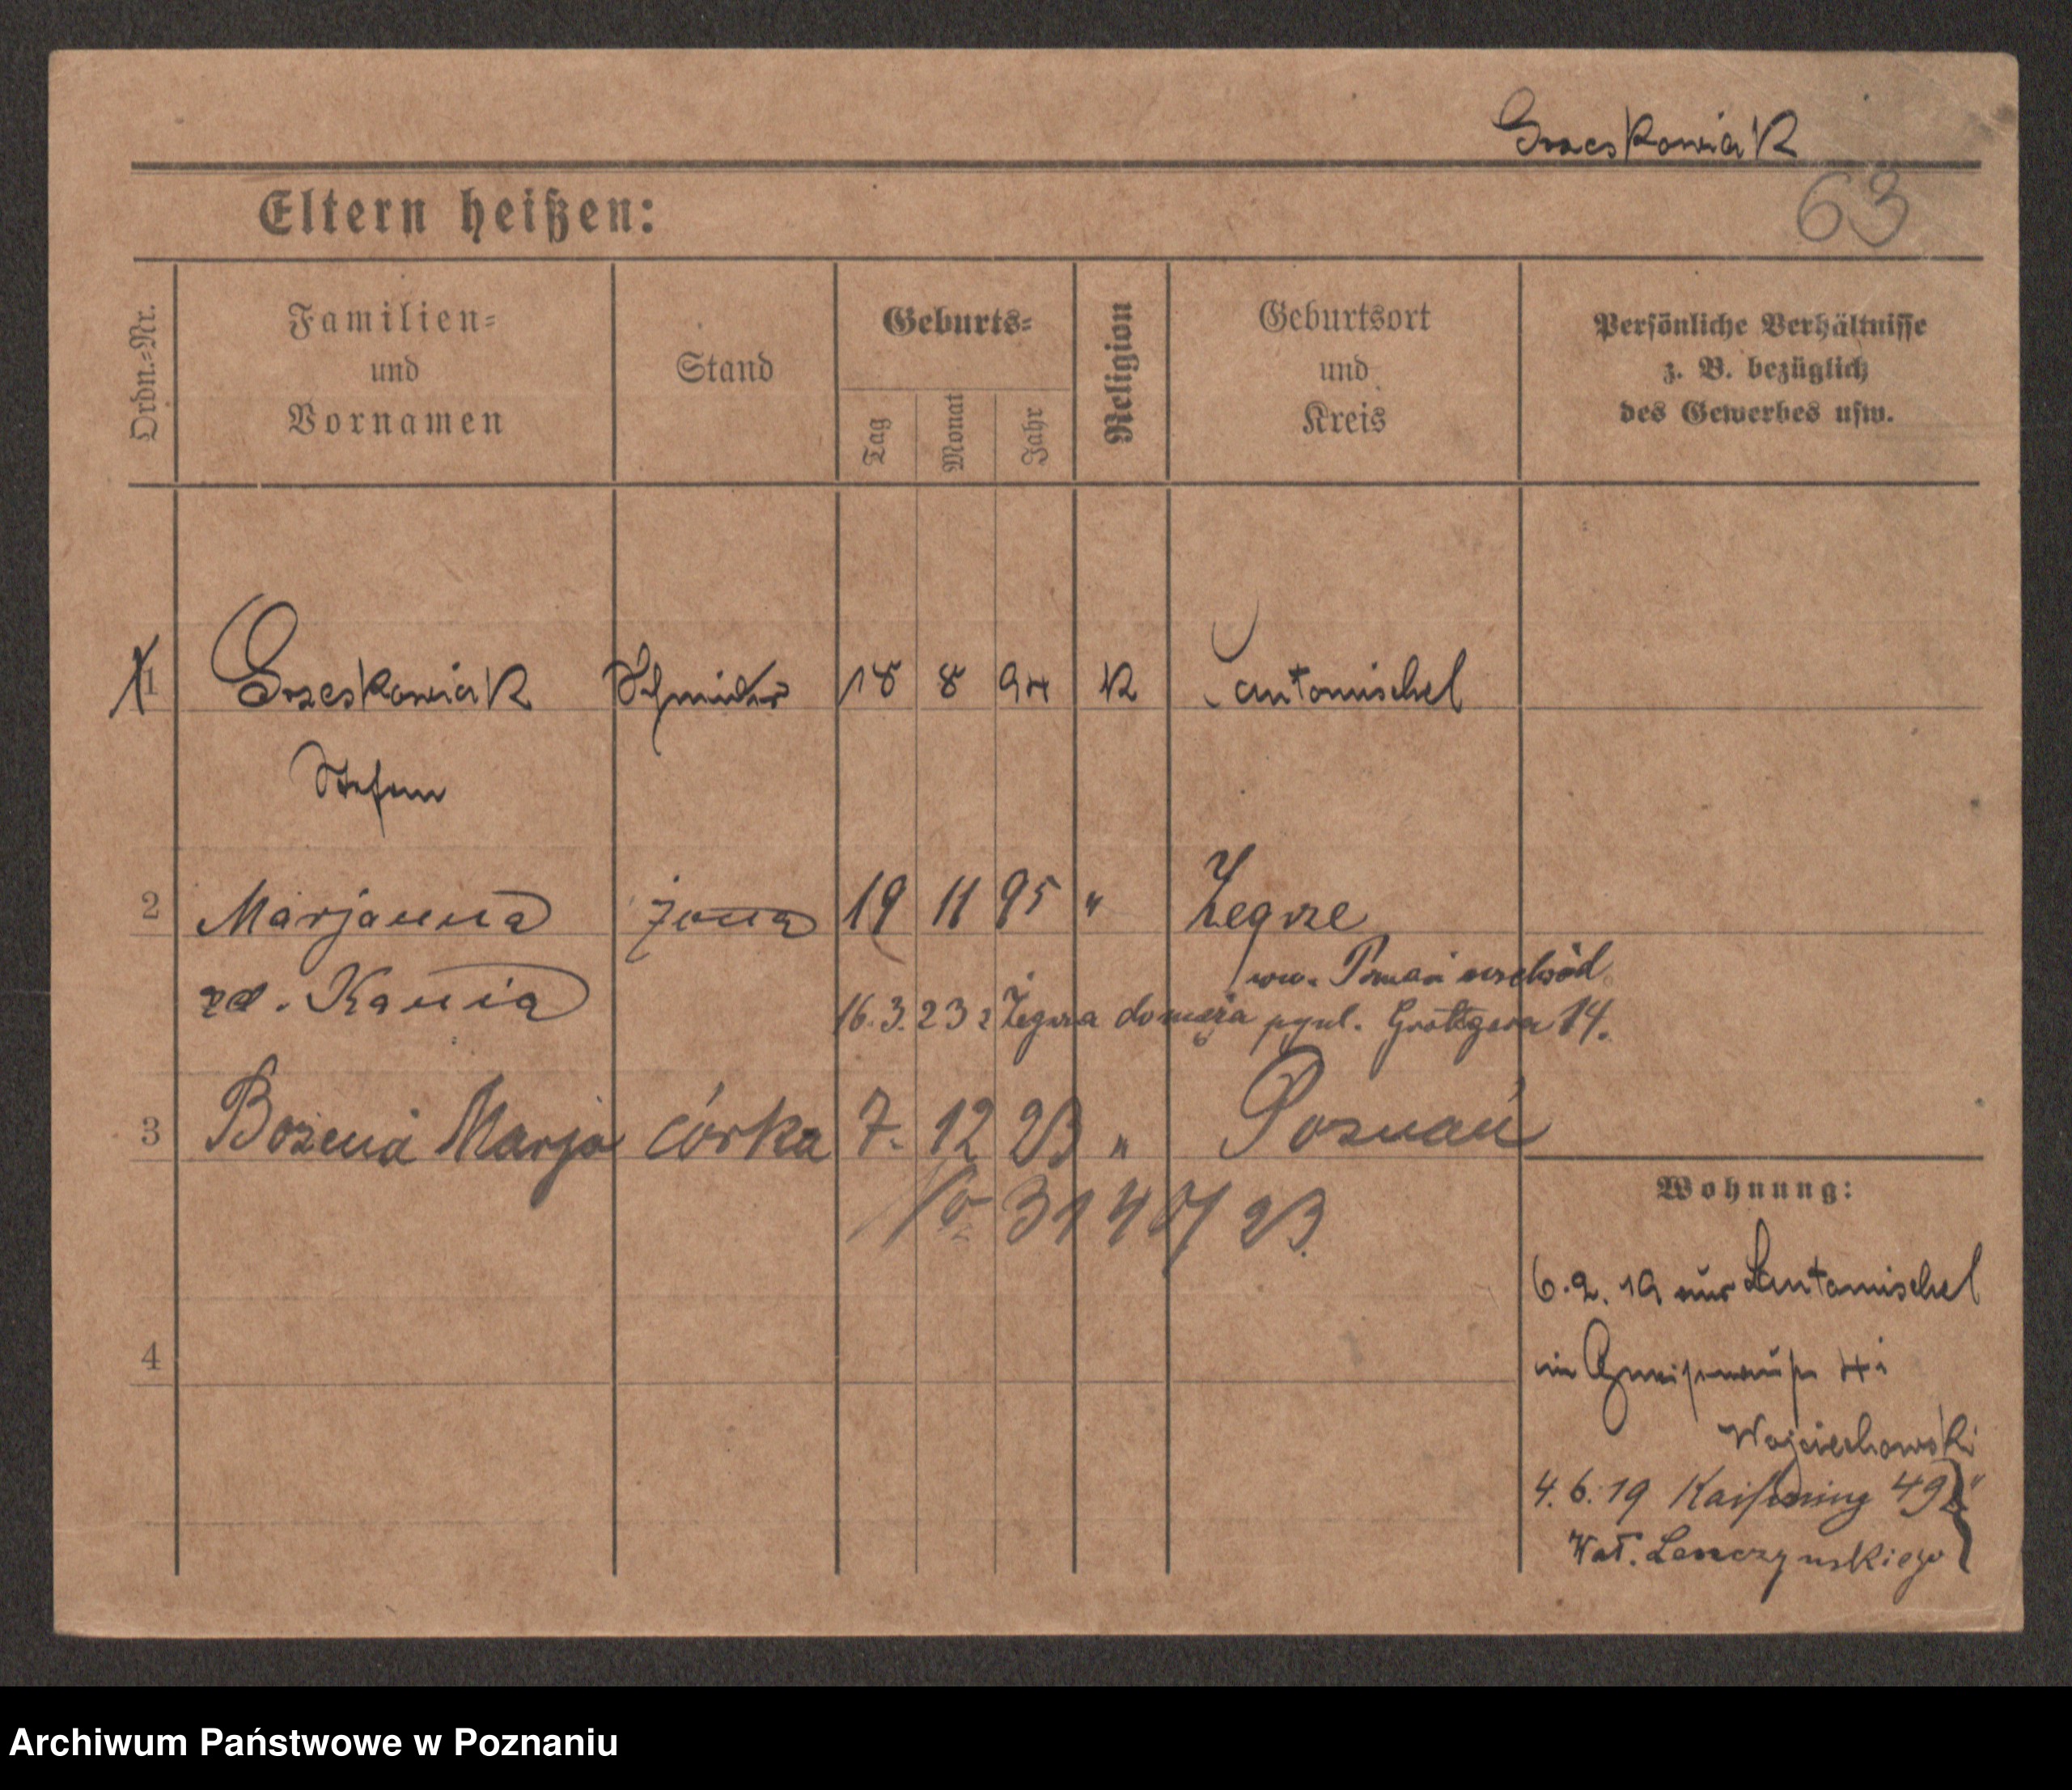 Grzeskowiak
63
Eltern heißen:
Ordn.=Nr.
Familien=
und
Vornamen
Stand
Geburts=
Tag
Monat
Jahr
Religion
Geburtsort
und
Kreis
Persönliche Verhältnisse
z. B. bezüglich
des Gewerbes usw.
1 Grzeskowiak Schneider 18 8 94 K Santomischel
Stefan
2 Marjanna żona 19 11 95 " Żegrze
zd. Kania
pow. Poznań wschód
16.3.23 z Żegrza do męża pgnl. Grottgera 14.
3 Bożena Marja córka 7. 12 23 " Poznań
3140/23.
Wohnung:
6.2.19 aus Santomischel
in Gneisenaustr
Wojciechowski
4.6.19 Kaiserring 49
4